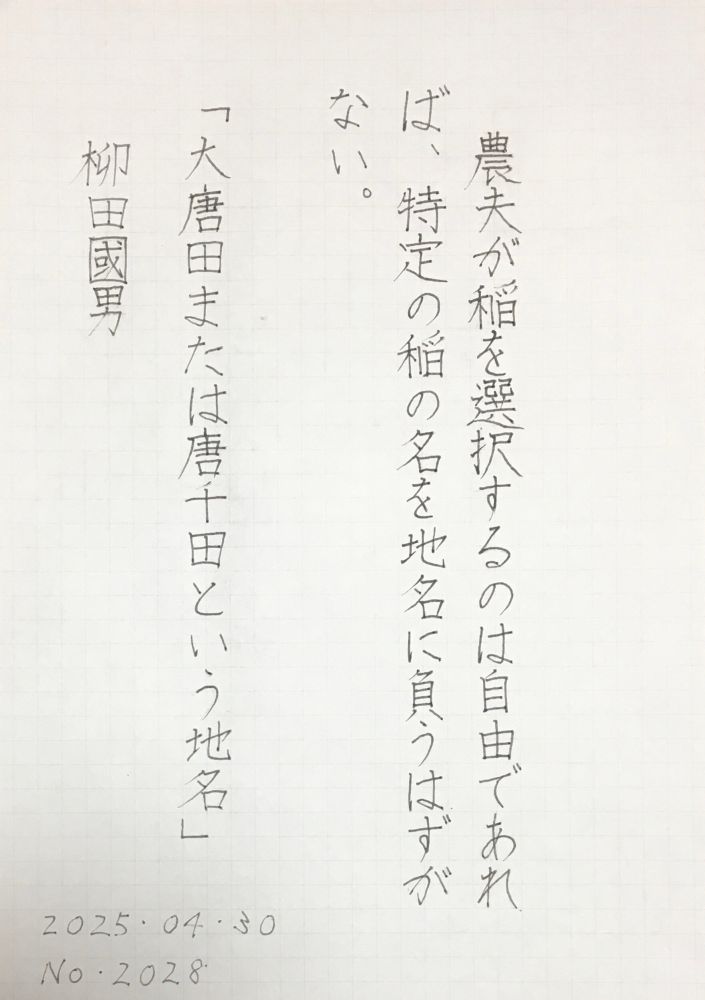 農夫が稲を選択するのは自由であれ
ば、特定の稲の名を地名に負うはずが
ない。
「大唐田または唐千田という地名」
柳田國男
2025・04・30
No・2028